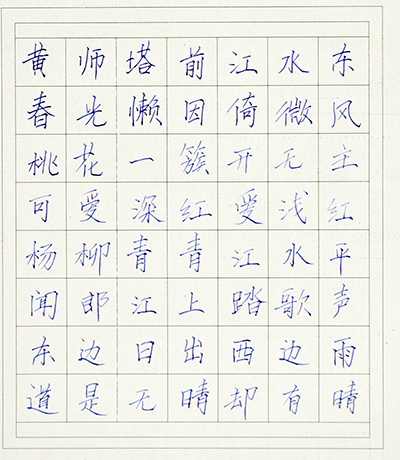 黄师塔前江水东
春光懒因倚微风
桃花一簇开无主
可爱深红爱浅红
杨柳青青江水平
闻郎江上踏歌声
东边日出西边雨
道是无晴却有晴